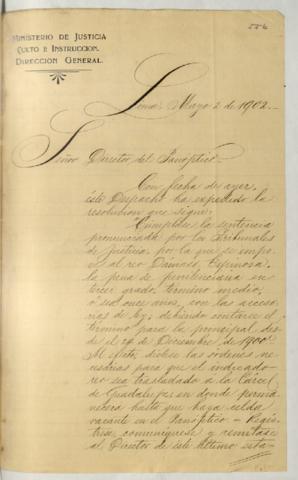 556
MINISTERIO DE JUSTICIA
CULTO E INSTRUCCION.
DIRECCION GENERAL.
Lima, Mayo 2 de 1902.
Señor Director del Panóptico.
Con fecha de ayer,
éste Despacho ha expedido la
resolucion que sigue:
"Cúmplase la sentencia
pronunciada por los Tribunales
de Justicia, por la que se impo-
ne al reo Dámaso Espinosa,
la pena de penitenciaria en
tercer grado, término medio,
ó sea once años, con las acceso-
rias de ley, debiendo contarse el
término para la principal, des-
de el 24 de Diciembre de 1900.
Al efecto, dense las órdenes ne-
cesarias para que el indicado
reo sea trasladado a la Cárcel
de Guadalupe, en donde perma-
necerá hasta que haya celda
vacante en el Panóptico.- Regís-
trese, comuníquese y remítase
al Director de este último esta-